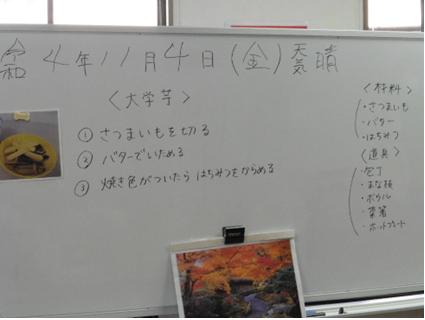 令和4年11月4日(金) 天気 晴
〈大学芋〉
① さつまいもを切る
② バターでいためる
③ 焼き色がついたら はちみつをからめる
〈材料〉
・さつまいも
・バター
・はちみつ
〈道具〉
・包丁
・まな板
・ボウル
・菜箸
・ホットプレート